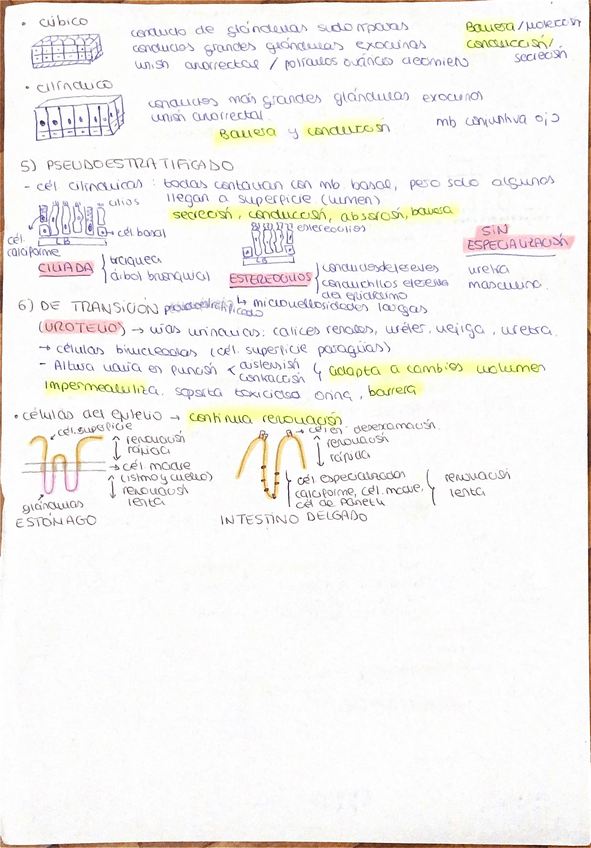 • CÚBICO
conducto de glándulas sudoríparas
conductos grandes glándulas exocrinas
unión anorrectal / folículos ovárico
Barrera / protección
conducción /
secreción
• CILÍNDRICO
conductos más grandes glándulas exocrinas
unión anorrectal.
mb conjuntiva ojo
Barrera y conducción
5) PSEUDOESTRATIFICADO
- cél cilíndricas : todas contactan con mb. basal, pero solo algunas
llegan a superficie (lumen)
secreción, conducción, absorción, barrera
cilios
estereocilios
cél. caliciforme
cél basal
LB
LB
CILIADA { tráquea
árbol bronquial
ESTEREOCILIOS { conductos deferentes
conductillos eferentes
del epidídimo
SIN ESPECIALIZACIÓN
uretra
masculina.
↳ microvellosidades largas
6) DE TRANSICIÓN
(UROTELIO) → vías urinarias: cálices renales, uréter, vejiga, uretra.
→ células binucleadas (cél. superficie paraguas)
- Altura varía en función < distensión
contracción } adapta a cambios volumen
impermeabiliza. soporta toxicidad orina, barrera
• células del epitelio → continua renovación
cél. superficie
↑ renovación
↓ rápida
→ cél. madre
(istmo y cuello)
↑ renovación
↓ lenta
glándulas
ESTÓMAGO
→ cél en descamación.
↑ renovación
↓ rápida
{ cél especializadas
caliciforme, cél. madre,
cél de paneth
{ renovación
lenta
INTESTINO DELGADO